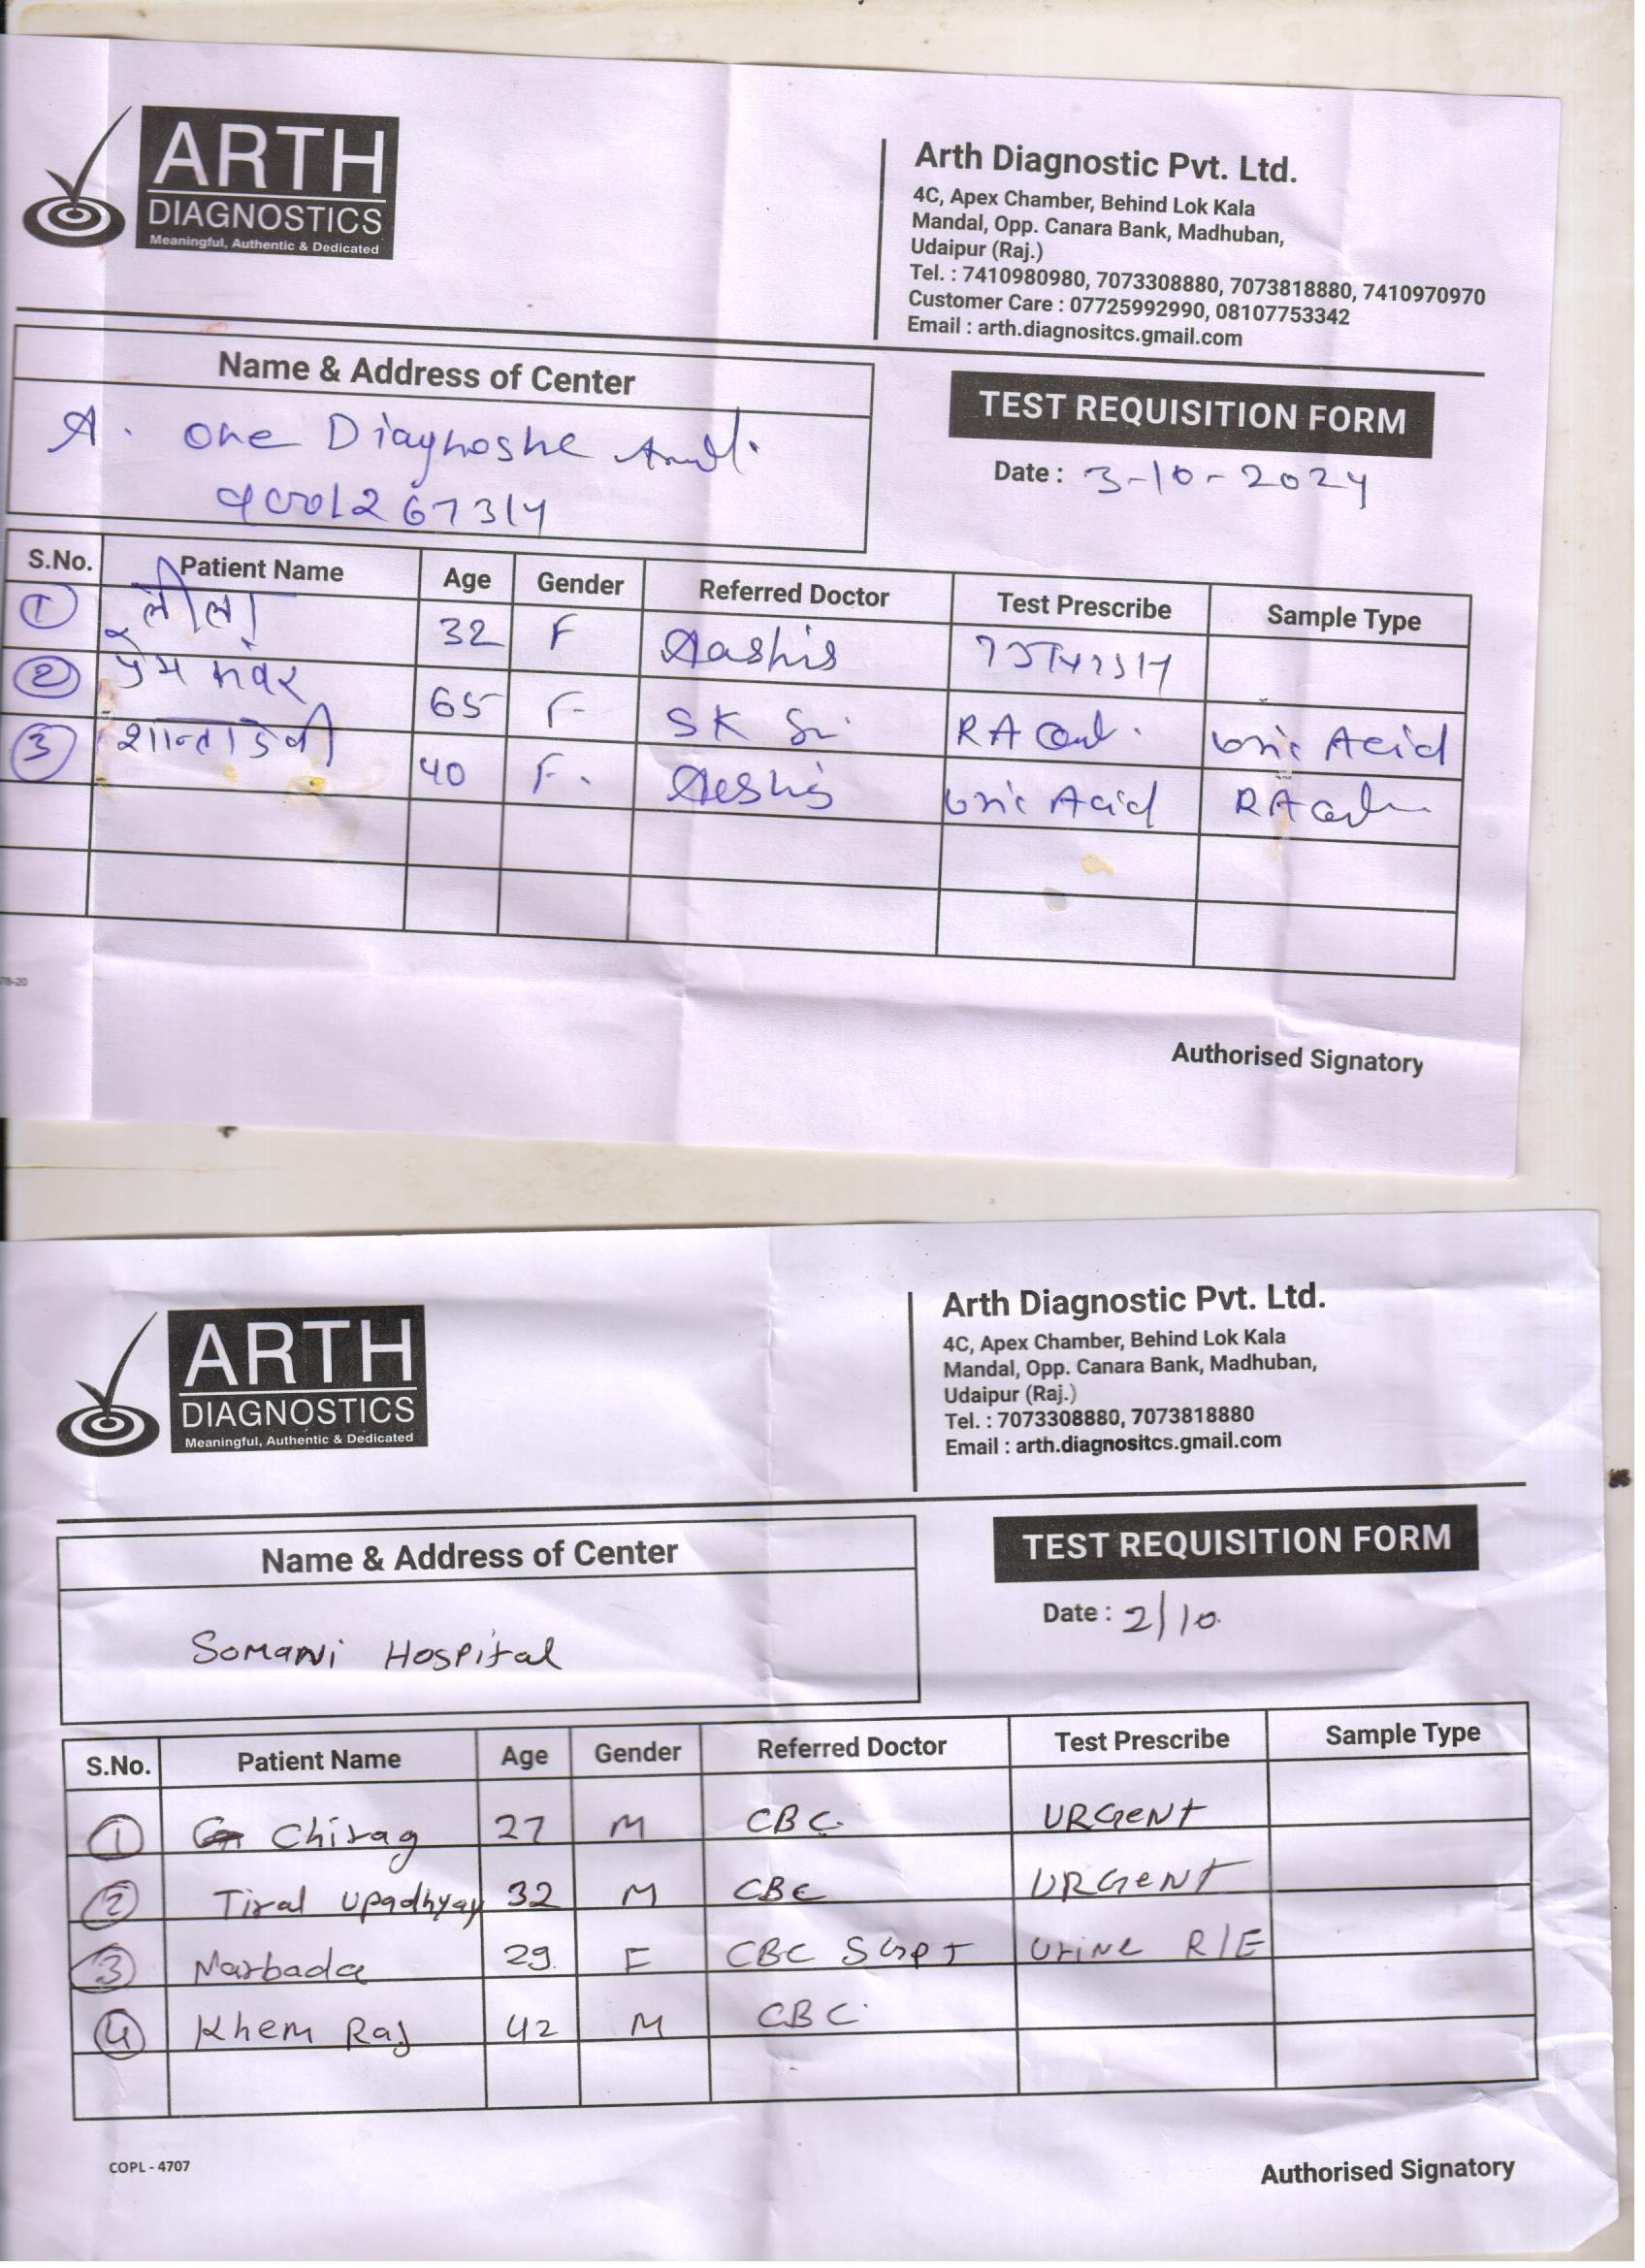 ARTH
DIAGNOSTICS
Meaningful, Authentic & Dedicated
Arth Diagnostic Pvt. Ltd.
4C, Apex Chamber, Behind Lok Kala
Mandal, Opp. Canara Bank, Madhuban,
Udaipur (Raj.)
Tel. : 7410980980, 7073308880, 7073818880, 7410970970
Customer Care : 07725992990, 08107753342
Email : arth.diagnositcs.gmail.com
Name & Address of Center
TEST REQUISITION FORM
A. one Diagnostic
Date : 3-10-2024
S.No. Patient Name Age Gender Referred Doctor Test Prescribe Sample Type
1 लीला 32 F Aashis
2 प्रेम कंवर 65 F SK RA Uric Acid
3 शान्ता देवी 40 F. Uric Acid RA
78-20
Authorised Signatory
ARTH
DIAGNOSTICS
Meaningful, Authentic & Dedicated
Arth Diagnostic Pvt. Ltd.
4C, Apex Chamber, Behind Lok Kala
Mandal, Opp. Canara Bank, Madhuban,
Udaipur (Raj.)
Tel. : 7073308880, 7073818880
Email : arth.diagnositcs.gmail.com
Name & Address of Center
TEST REQUISITION FORM
Somani Hospital
Date : 2/10
S.No. Patient Name Age Gender Referred Doctor Test Prescribe Sample Type
1 Chirag 27 M CBC URGENT
2 Upadhyay 32 M CBC URGENT
3 Narbada 29 F CBC SGPT Urine R/E
4 Khem Raj 42 M CBC
COPL - 4707
Authorised Signatory